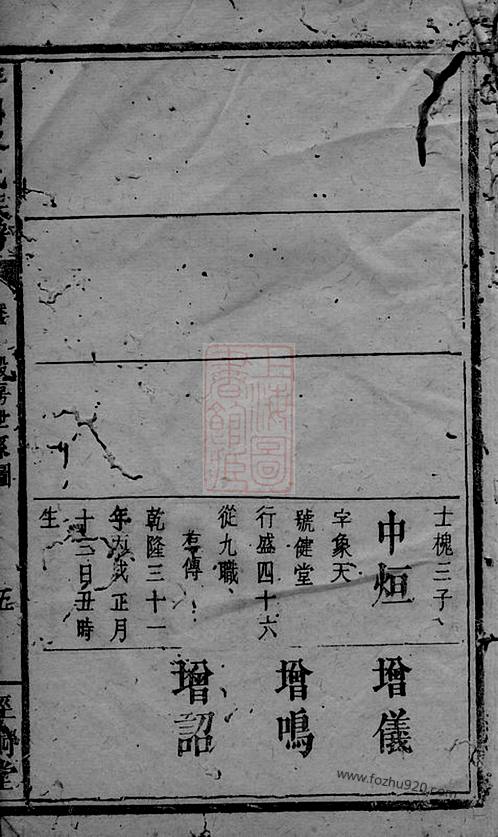 士槐三子
中烜
字象天
號健堂
行盛四十六
從九職
有傳
乾隆三十一
年丙戌正月
十三日丑時
生
增儀
增鳴
增詔
房世系圖
五
上海圖
書館藏
www.fozhu920.com